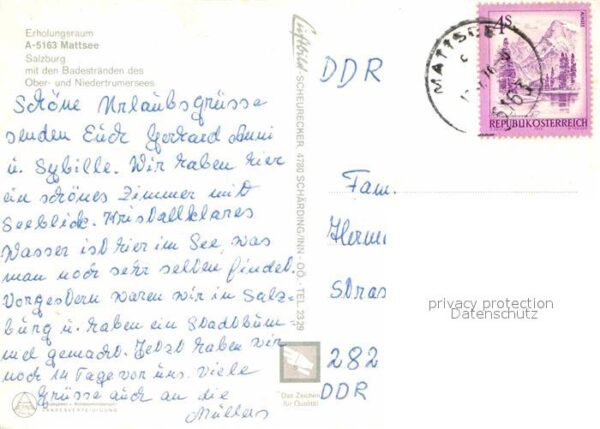 Erholungsraum
A-5163 Mattsee
Salzburg
mit den Badestränden des
Ober- und Niedertrumersees
Schöne Urlaubsgrüsse
senden Euch Gerhard Anni
u. Sybille. Wir haben hier
ein schönes Zimmer mit
Seeblick. Kristallklares
Wasser ist hier im See, was
man noch sehr selten findet.
Vorgestern waren wir in Salz-
burg u. haben ein Stadtbum-
mel gemacht. Jetzt haben wir
noch 14 Tage vor uns. Viele
Grüsse auch an die
Müllers
LANDESVERTEIDIGUNG
Luftbild SCHEURECKER, 4780 SCHÄRDING/INN - OÖ. - TEL. 2329
Das Zeichen
für Qualität
MATTSEE
5163
4S
ALMSEE
REPUBLIK ÖSTERREICH
DDR
Fam.
Herm
Stras
282
DDR
privacy protection
Datenschutz